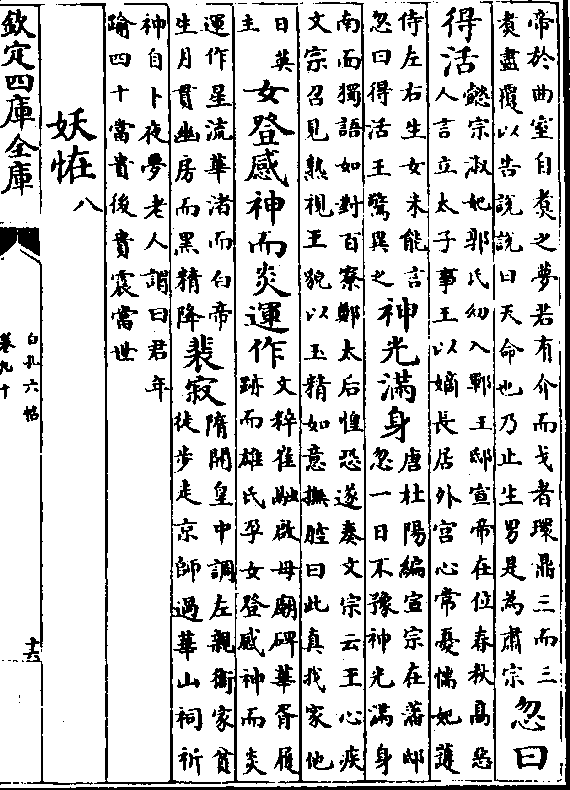 帝於曲室自煑之夢若有介而戈者環鼎三而三
煑盡覆以告說說曰天命也乃止生男是為肅宗
忽曰
得活
懿宗淑妃郭氏幼入鄆王邸宣帝在位春秋高惡
人言立太子事王以嫡長居外宫心常憂惴妃護
侍左右生女未能言
忽曰得活王驚異之
神光滿身
唐杜陽編宣宗在藩邸
忽一日不豫神光滿身
南而獨語如對百寮鄭太后惶恐遂奏文宗云王心疾
文宗召見熟視王貌以玉精如意撫腔曰此真我家他
日英
主
女登感神而炎運作
文粹崔融啟母廟碑華胥履
跡而雄氏孕女登感神而炎
運作星流華渚而白帝
生月貫幽房而黑精降
裴寂
隋開皇中調左親衛家貧
徒步走京師過華山祠祈
神自卜夜夢老人謂曰君年
踰四十當貴後貴震當世
妖恠八
欽定四庫全書
白孔六帖
卷九十
十六